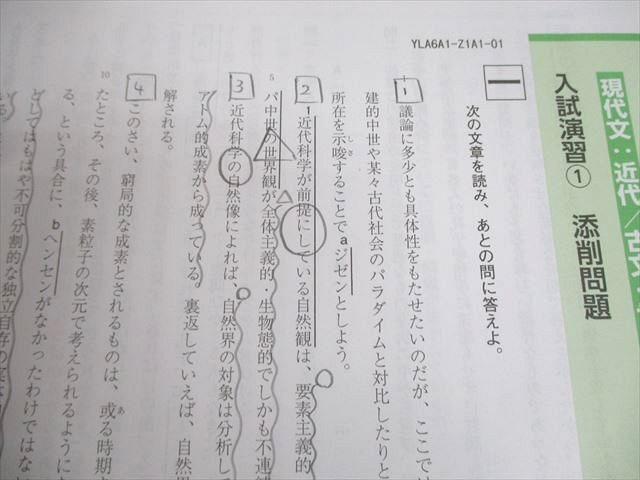 YLA6A1-Z1A1-01
現代文：近代／古文
入試演習① 添削問題
一
次の文章を読み、あとの問に答えよ。
1 議論に多少とも具体性をもたせたいのだが、ここでは
建的中世や某々古代社会のパラダイムと対比したりと
所在を示唆することでaジゼンとしよう。
しさ
2 近代科学が前提にしている自然観は、要素主義的
5 バ中世の世界観が全体主義的・生物態的でしかも不連続
3 近代科学の自然像によれば、自然界の対象は分析して
アトム的成素から成っている。裏返していえば、自然界
解される。
4 このさい、窮局的な成素とされるものは、或る時期
あ
10 たところ、その後、素粒子の次元で考えられるように
る、という具合に、bヘンセンがなかったわけではな
としてはもはや不可分割的な独立自存の実